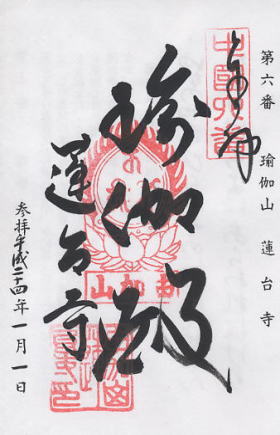 第六番 瑜伽山 蓮台寺
奉拝
瑜伽殿
蓮台寺
参拝平成二十四年一月一日
瑜加山